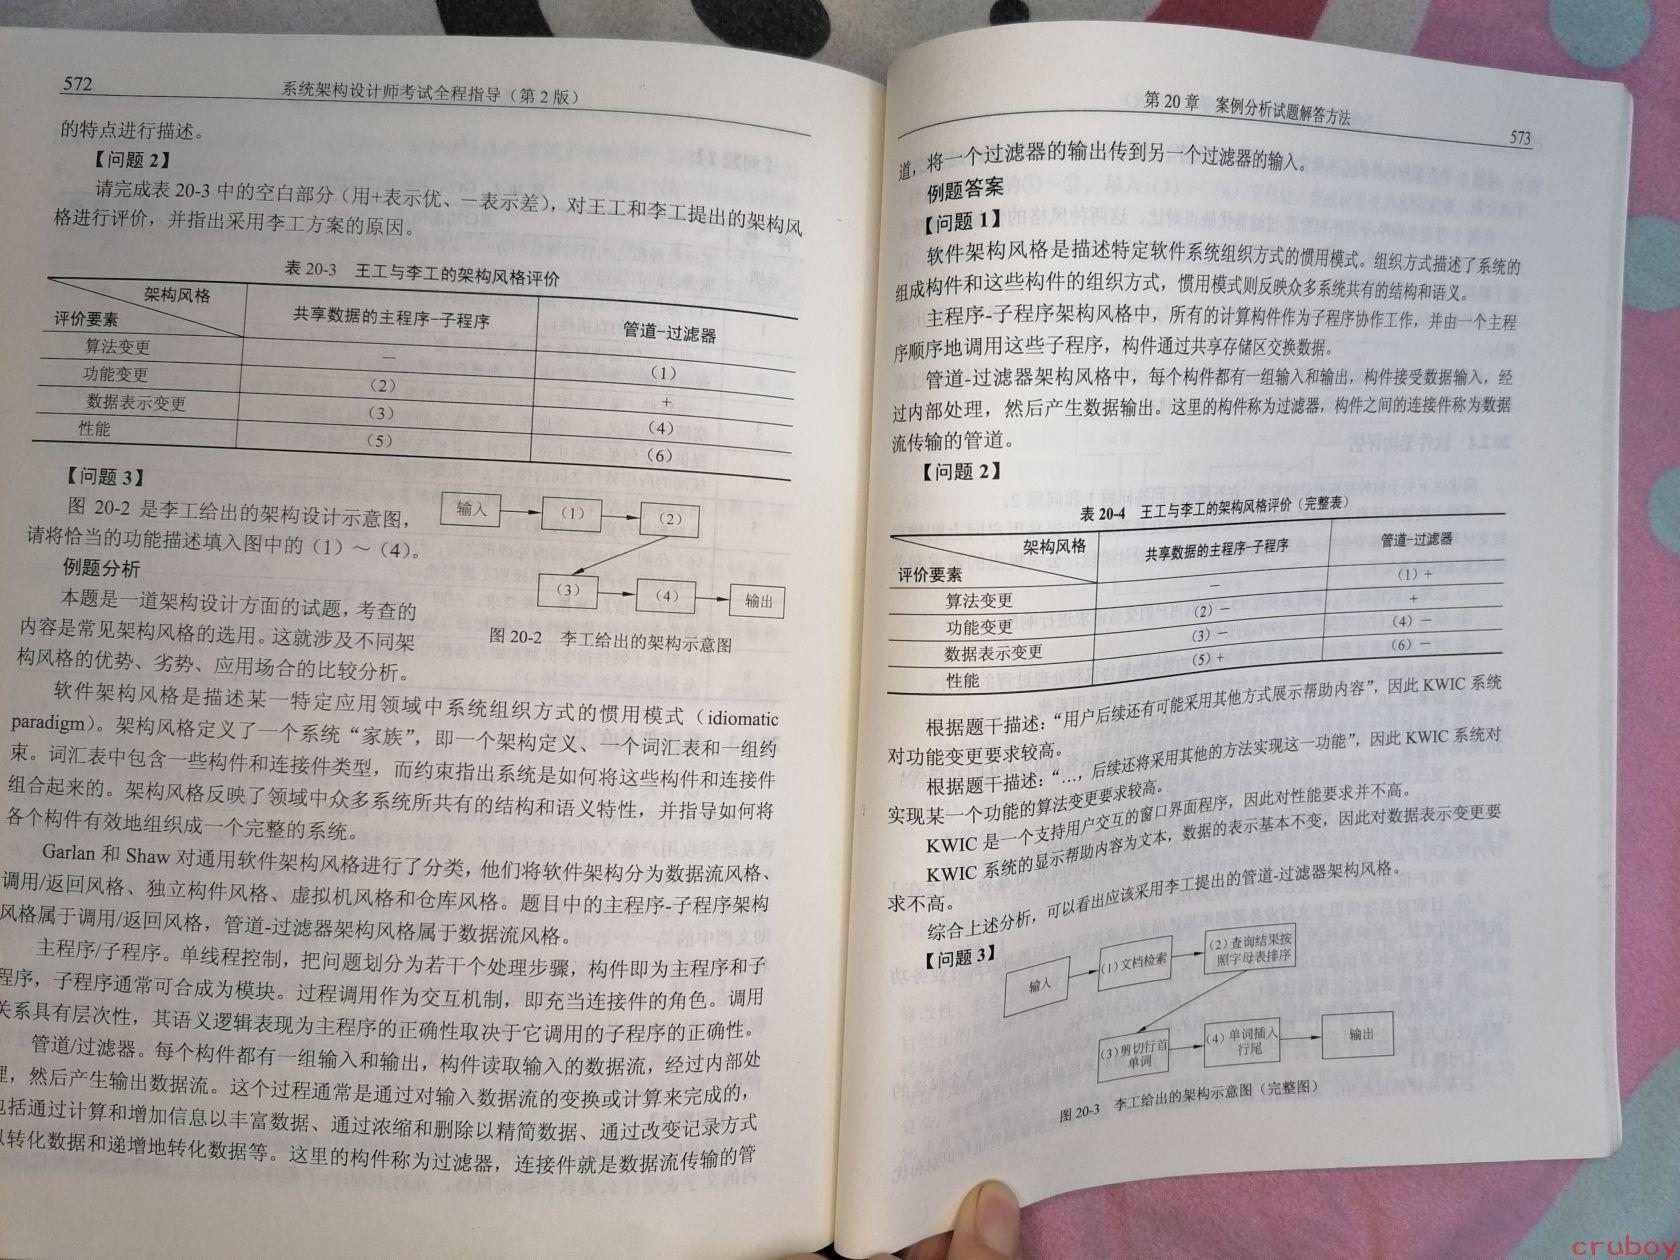 572
系统架构设计师考试全程指导（第2版）
的特点进行描述。
【问题2】
请完成表20-3中的空白部分（用+表示优、－表示差），对王工和李工提出的架构风
格进行评价，并指出采用李工方案的原因。
表20-3 王工与李工的架构风格评价
架构风格
评价要素
共享数据的主程序-子程序
管道-过滤器
算法变更
－
（1）
功能变更
（2）
+
数据表示变更
（3）
（4）
性能
（5）
（6）
【问题3】
图20-2是李工给出的架构设计示意图，
请将恰当的功能描述填入图中的（1）～（4）。
输入
（1）
（2）
（3）
（4）
输出
图20-2 李工给出的架构示意图
例题分析
本题是一道架构设计方面的试题，考查的
内容是常见架构风格的选用。这就涉及不同架
构风格的优势、劣势、应用场合的比较分析。
软件架构风格是描述某一特定应用领域中系统组织方式的惯用模式（idiomatic
paradigm）。架构风格定义了一个系统“家族”，即一个架构定义、一个词汇表和一组约
束。词汇表中包含一些构件和连接件类型，而约束指出系统是如何将这些构件和连接件
组合起来的。架构风格反映了领域中众多系统所共有的结构和语义特性，并指导如何将
各个构件有效地组织成一个完整的系统。
Garlan和Shaw对通用软件架构风格进行了分类，他们将软件架构分为数据流风格、
调用/返回风格、独立构件风格、虚拟机风格和仓库风格。题目中的主程序-子程序架构
风格属于调用/返回风格，管道-过滤器架构风格属于数据流风格。
主程序/子程序。单线程控制，把问题划分为若干个处理步骤，构件即为主程序和子
程序，子程序通常可合成为模块。过程调用作为交互机制，即充当连接件的角色。调用
关系具有层次性，其语义逻辑表现为主程序的正确性取决于它调用的子程序的正确性。
管道/过滤器。每个构件都有一组输入和输出，构件读取输入的数据流，经过内部处
理，然后产生输出数据流。这个过程通常是通过对输入数据流的变换或计算来完成的，
包括通过计算和增加信息以丰富数据、通过浓缩和删除以精简数据、通过改变记录方式
以转化数据和递增地转化数据等。这里的构件称为过滤器，连接件就是数据流传输的管
第20章 案例分析试题解答方法
573
道，将一个过滤器的输出传到另一个过滤器的输入。
例题答案
【问题1】
软件架构风格是描述特定软件系统组织方式的惯用模式。组织方式描述了系统的
组成构件和这些构件的组织方式，惯用模式则反映众多系统共有的结构和语义。
主程序-子程序架构风格中，所有的计算构件作为子程序协作工作，并由一个主程
序顺序地调用这些子程序，构件通过共享存储区交换数据。
管道-过滤器架构风格中，每个构件都有一组输入和输出，构件接受数据输入，经
过内部处理，然后产生数据输出。这里的构件称为过滤器，构件之间的连接件称为数据
流传输的管道。
【问题2】
表20-4 王工与李工的架构风格评价（完整表）
架构风格
评价要素
共享数据的主程序-子程序
管道-过滤器
算法变更
－
（1）+
功能变更
（2）－
+
数据表示变更
（3）－
（4）－
性能
（5）+
（6）－
根据题干描述：“用户后续还有可能采用其他方式展示帮助内容”，因此KWIC系统
对功能变更要求较高。
根据题干描述：“…，后续还将采用其他的方法实现这一功能”，因此KWIC系统对
实现某一个功能的算法变更要求较高。
KWIC是一个支持用户交互的窗口界面程序，因此对性能要求并不高。
KWIC系统的显示帮助内容为文本，数据的表示基本不变，因此对数据表示变更要
求不高。
综合上述分析，可以看出应该采用李工提出的管道-过滤器架构风格。
【问题3】
输入
（1）文档检索
（2）查询结果按
照字母表排序
（3）剪切行首
单词
（4）单词插入
行尾
输出
图20-3 李工给出的架构示意图（完整图）
cruboy